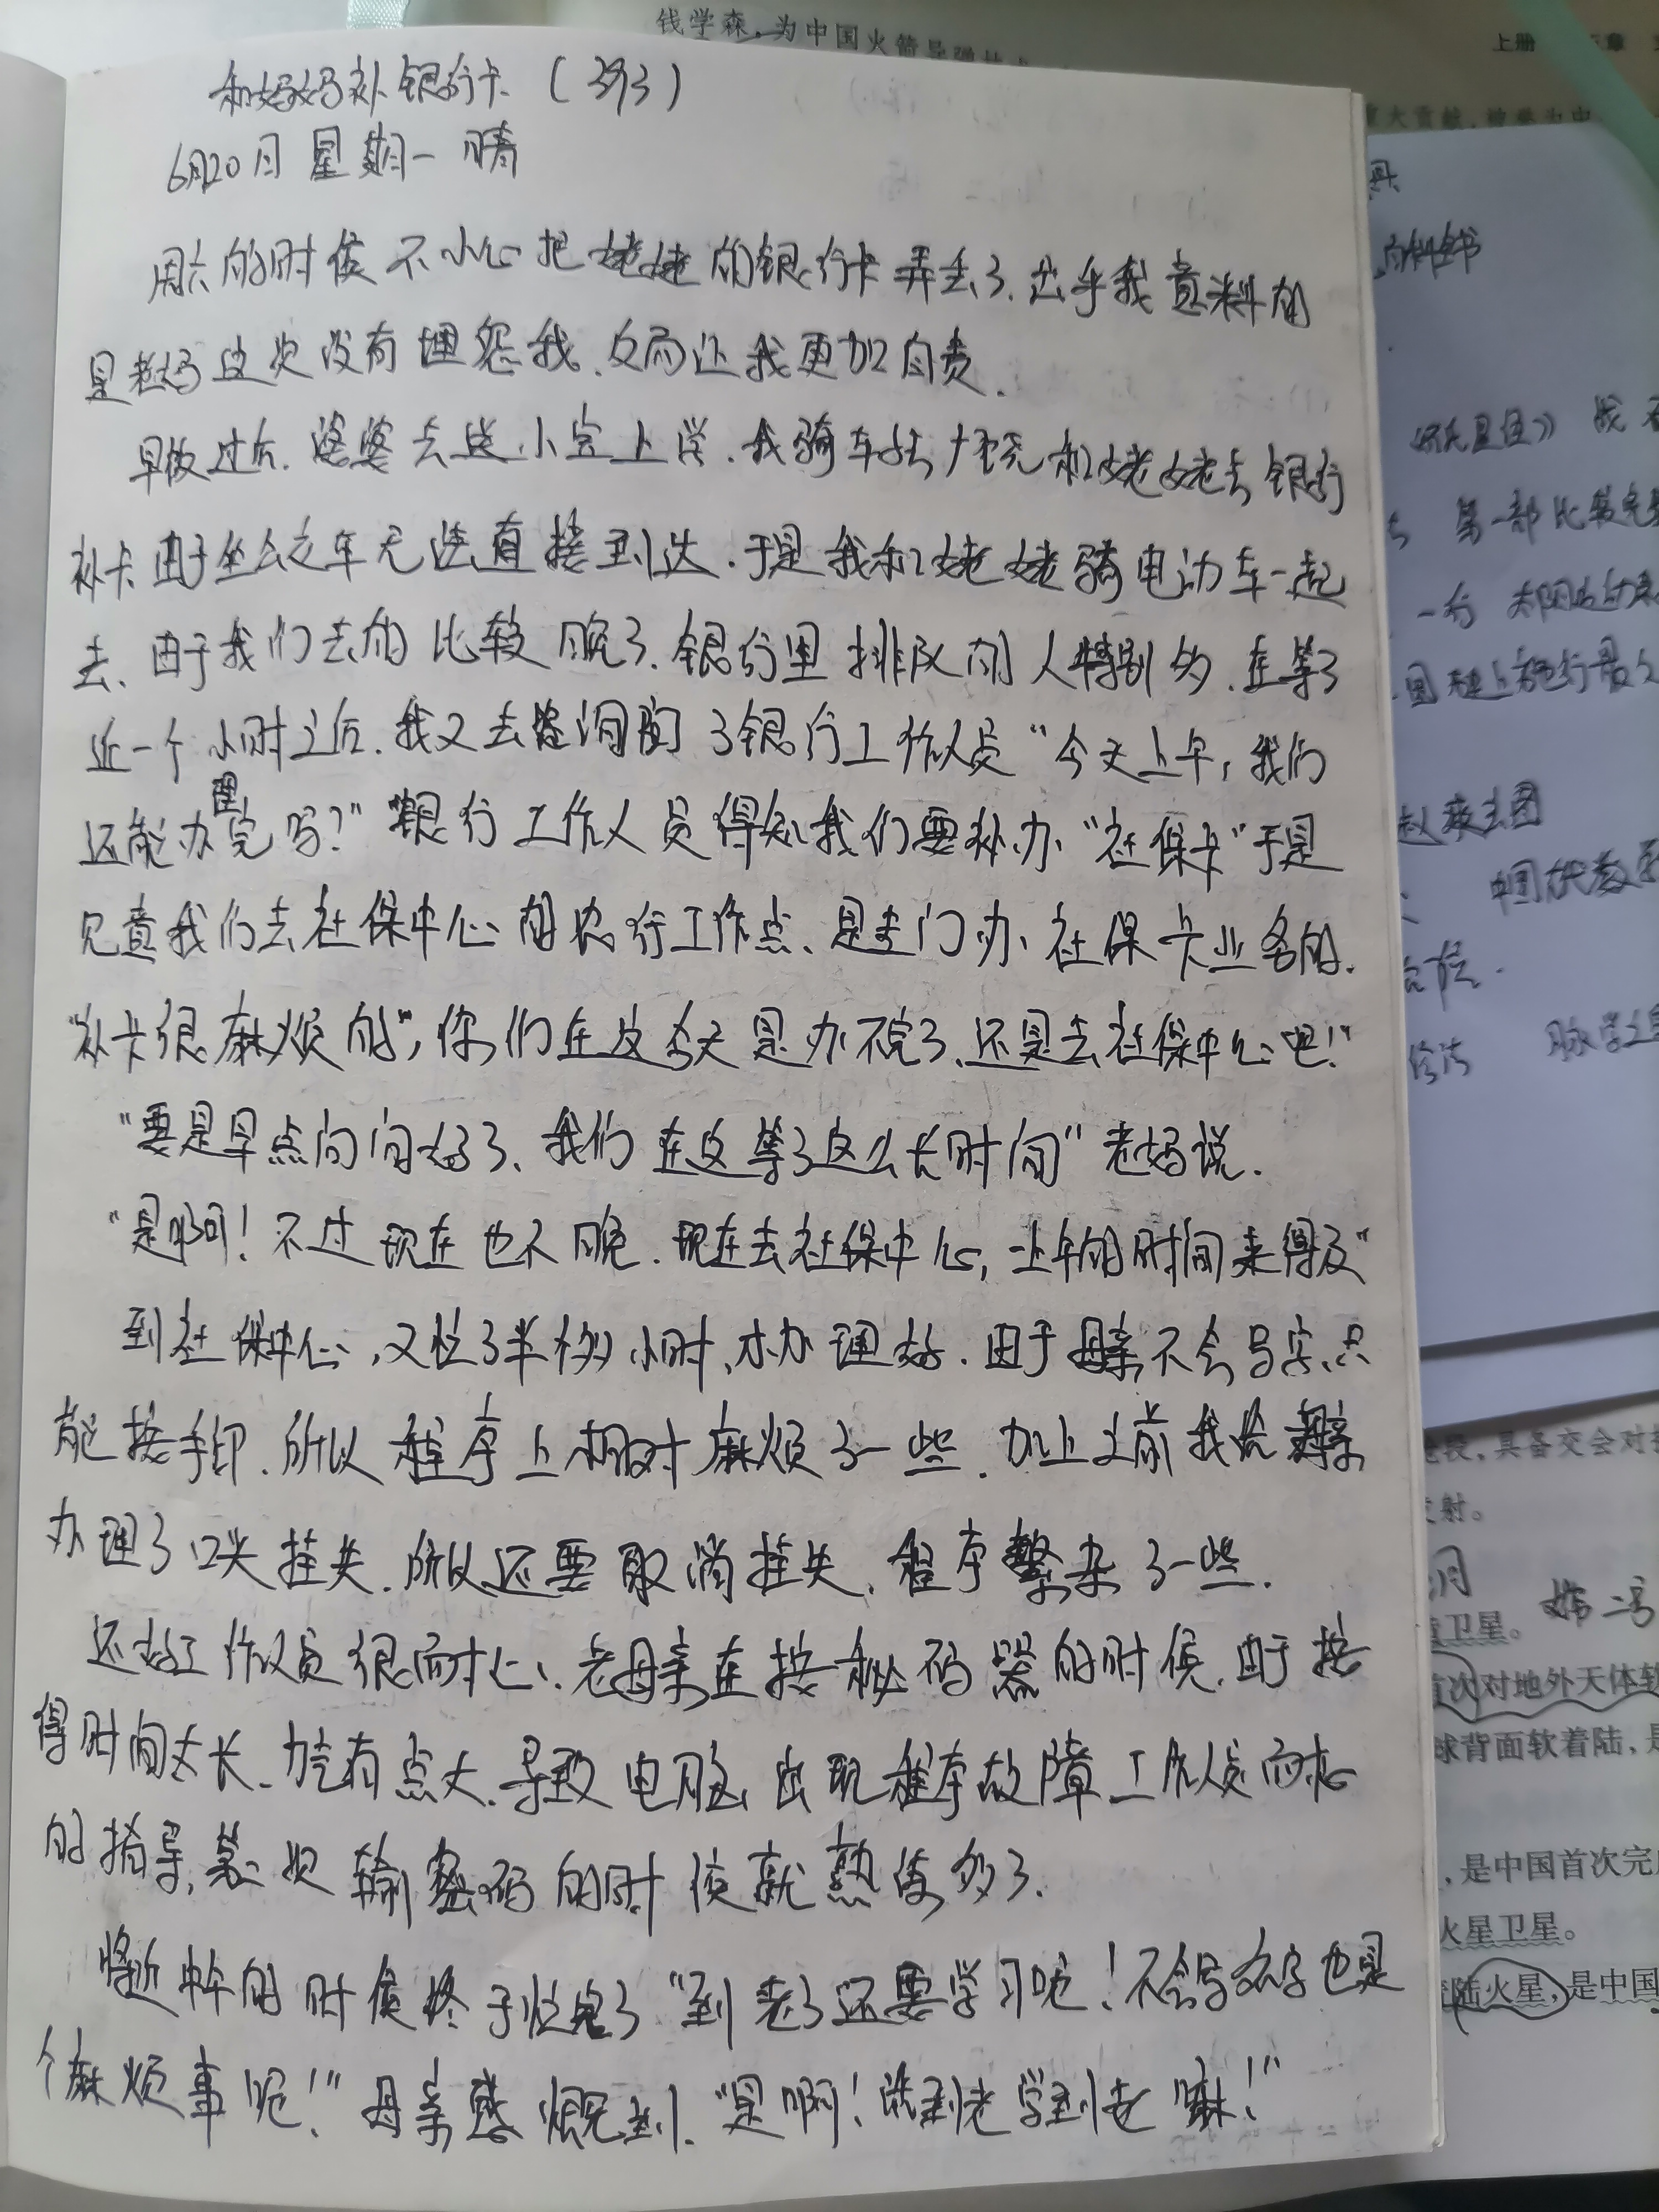 钱学森,为中国火箭导弹
上册 章
大贡献,被誉为中
和妈妈补银行卡(393)
6月20日 星期一 晴
周六的时侯不小心把姥姥的银行卡弄丢了.出乎我意料的
是老妈这次没有埋怨我.反而让我更加自责.
早饭过后.婆婆去送小宝上学.我骑车去 和姥姥去银行
补卡由于坐公交车无法直接到达.于是我和姥姥骑电动车一起
去、由于我们去的比较晚了.银行里排队的人特别多.在等了
近一个小时之后.我又去咨询问了银行工作人员“今天上午,我们
还能办理完吗?”银行工作人员得知我们要补办“社保卡”于是
见意我们去社保中心的农行工作点、是专门办、社保卡业务的.
“补卡很麻烦的”,你们在这今天是办不完了、还是去社保中心吧!”
“要是早点问问好了、我们在这等了这么长时间”老妈说.
“是啊!不过现在也不晚.现在去社保中心,上午的时间来得及”
到社保中心,又忙了半个多小时,才办理好.由于母亲不会写字、只
能按手印.所以程序上相对麻烦了一些.加上之前我给母亲
办理了口头挂失.所以还要取消挂失、程序繁杂了一些.
还好工作人员很耐心、老母亲在按秘码器的时候.由于按
得时间太长、力气有点大.导致电脑出现程序故障工作人员耐心
的指导,第二次输密码的时侯就熟练多了.
将近中午的时侯终于忙完了“到老了还要学习呢!不会写名字也是
个麻烦事呢!”母亲感慨到.“是啊!活到老学到老嘛!”
第一部比较完整
赵爽 圆
中国古代数学
段,具备交会对接
发射。
卫星。
首次对地外天体软
球背面软着陆,是
,是中国首次完成
火星卫星。
陆火星,是中国